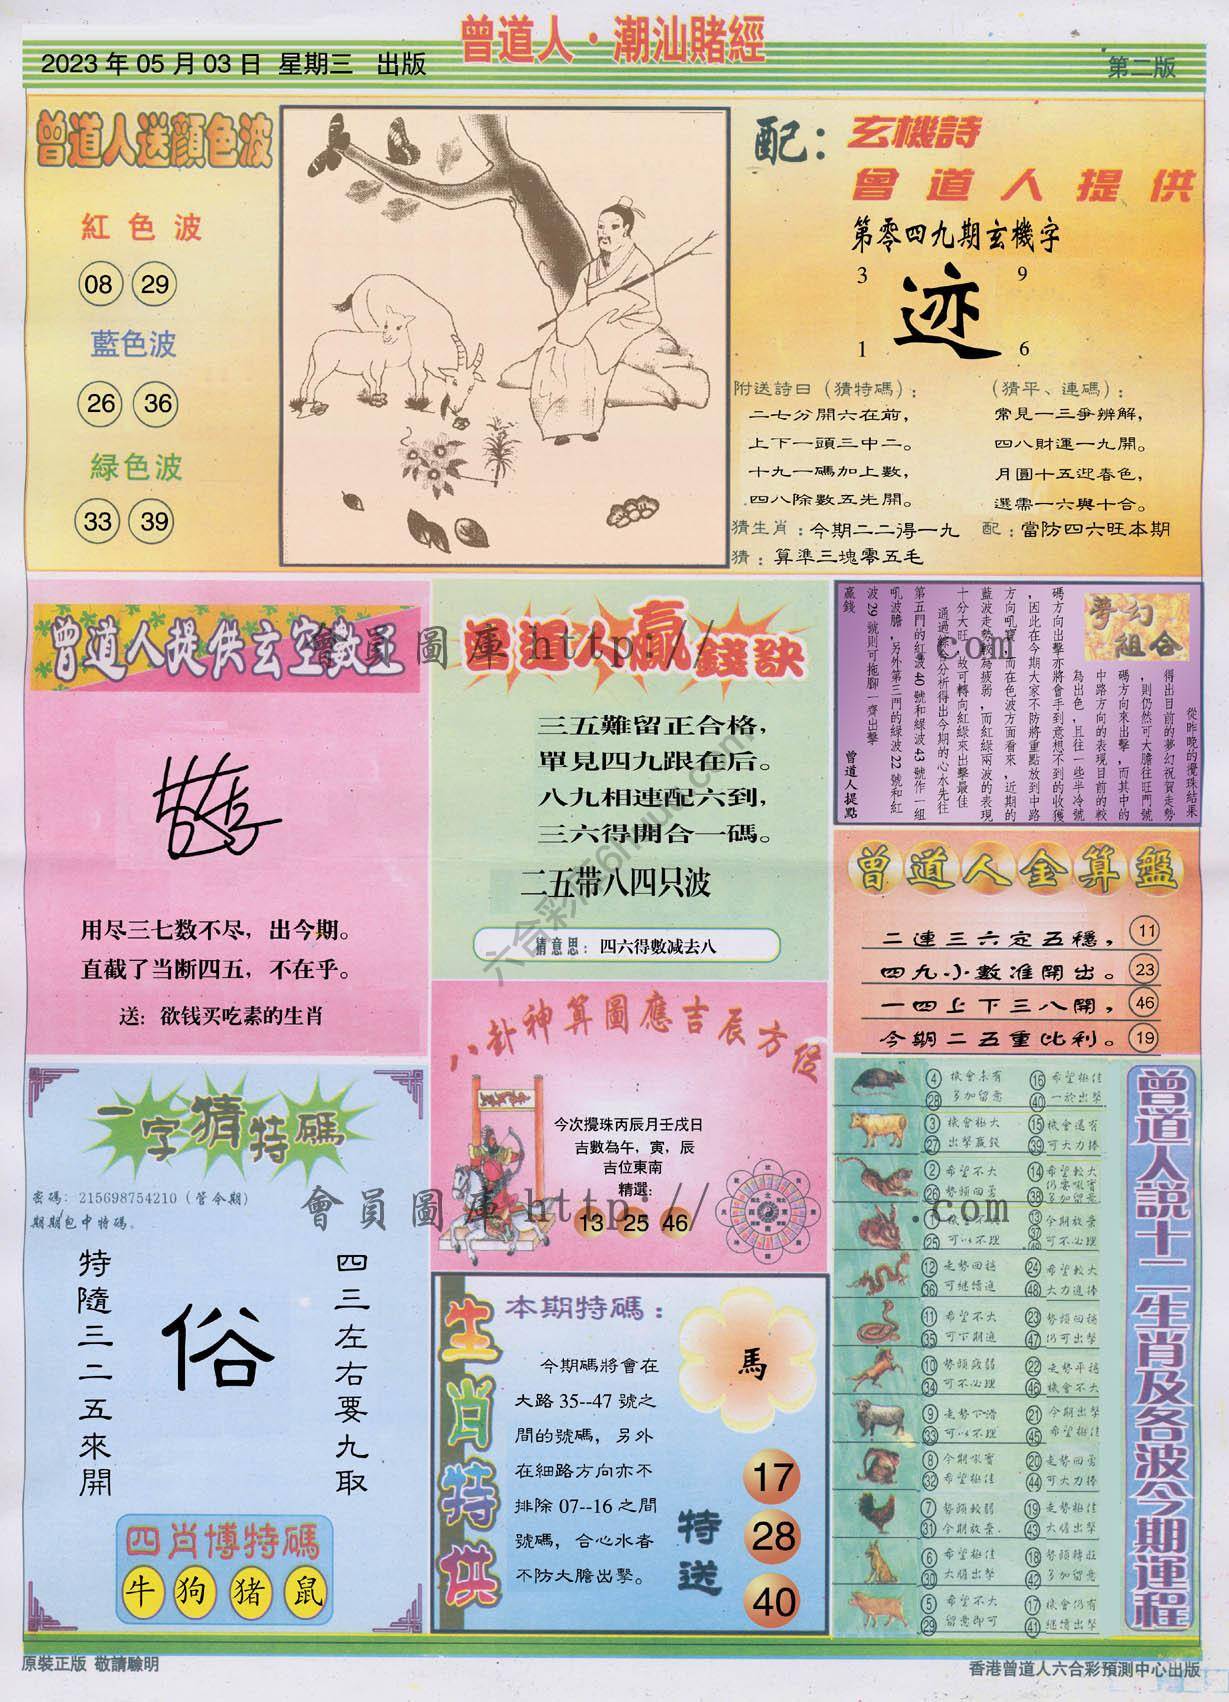 曾道人·潮汕賭經
2023 年 05 月 03 日 星期三 出版
第二版
曾道人送顏色波
紅色波
08 29
藍色波
26 36
緑色波
33 39
配：玄機詩
曾道人提供
第零四九期玄機字
3 9
迹
1 6
附送詩曰（猜特碼）：
二七分開六在前，
上下一頭三中二。
十九一碼加上數，
四八除數五先開。
（猜平、連碼）：
常見一三爭辨解，
四八財運一九開。
月圓十五迎春色，
選需一六與十合。
猜生肖：今期二二得一九
配：當防四六旺本期
猜：算準三塊零五毛
曾道人提供玄空數王
用尽三七数不尽，出今期。
直截了当断四五，不在乎。
送：欲钱买吃素的生肖
曾道人贏錢訣
三五難留正合格，
單見四九跟在后。
八九相連配六到，
三六得開合一碼。
二五带八四只波
猜意思：四六得數减去八
夢幻組合
從昨晚的攪珠結果
得出目前的夢幻祝賀走勢
，則仍然可大膽往旺門號
碼方向來出擊，而其中的
中路方向的表現目前的較
為出色，且往一些半冷號
碼方向出擊亦將會手到意想不到的收獲
，因此在今期大家不防將重點放到中路
方向吼寶，而在色波方面看來，近期的
藍波走勢較為疲弱，而紅綠兩波的表現
十分大旺，故可轉向紅綠來出擊最佳
通過綜合分析得出今期的心水先往
第五門的紅波 40 號和緑波 43 號作一組
吼波膽，另外第三門的緑波 22 號和紅
波 29 號則可拖腳一齊出擊
贏錢
曾道人提點
曾道人金算盤
二連三六定五穩， 11
四九小數准開出。 23
一四上下三八開， 46
今期二五重比利。 19
八卦神算圖應吉辰方位
今次攪珠丙辰月壬戌日
吉數為午，寅，辰
吉位東南
精選：
13 25 46
一字猜特碼
密碼：215698754210（管今期）
期期包中特碼。
四三左右要九取
俗
特隨三二五來開
四肖博特碼
牛 狗 猪 鼠
生肖特供
本期特碼：
馬
今期碼將會在
大路 35--47 號之
間的號碼，另外
在細路方向亦不
排除 07--16 之間
號碼，合心水者
不防大膽出擊。
特送
17
28
40
曾道人説十二生肖及各波今期運程
4 機會未有 16 希望極佳
28 多加留意 40 一於出擊
3 機會極大 15 機會還有
27 出擊贏錢 39 可大力捧
2 希望不大 14 希望較大
26 勢頭回勇 38 多加留意
1 13 今期放棄
25 可以不理 37 可不必理
12 走勢回穩 24 希望較大
36 可繼續進 48 大力追捧
11 希望不大 23 勢頭回穩
35 可下期追 47 仍可出擊
10 勢頭疲弱 22 走勢平穩
34 可不必理 46 機會不大
9 走勢下滑 21 今期出擊
33 可以不理 45 希望極佳
8 今期吼寶 20 走勢回勇
32 希望極佳 44 可大力捧
7 勢頭較弱 19 走勢極佳
31 今期放棄 43 大膽出擊
6 希望極佳 18 勢頭轉旺
30 大膽出擊 42 多加留意
5 希望不大 17 機會仍有
29 留意即可 41 繼續出擊
會員圖庫 http:// .com
會員圖庫 http:// .com
原裝正版 敬請驗明
香港曾道人六合彩預測中心出版